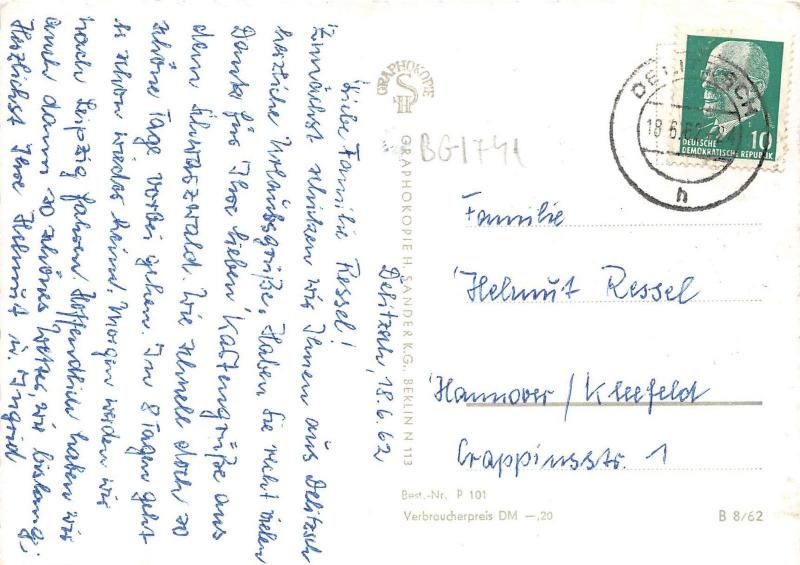 Delitzsch, 18.6.62
Liebe Familie Ressel!
Zunächst schicken wir Ihnen aus Delitzsch
herzliche Urlaubsgrüße. Haben Sie recht vielen
Dank für Ihre lieben Kartengrüße aus
dem Schwarzwald. Wie schnell doch so
schöne Tage vorbei gehen. In 8 Tagen geht
es schon wieder heim. Morgen werden wir
nach Leipzig fahren. Hoffendlich haben wir
auch dann so schönes Wetter, wie bislang.
Herzlichst Ihre Helmut u. Ingrid
GRAPHOKOPIE
H S
GRAPHOKOPIE H. SANDER K.G., BERLIN N 113
BG1741
DELITZSCH
18.6.62
h
10
DEUTSCHE
DEMOKRATISCHE REPUBLIK
Familie
Helmut Ressel
Hannover / Kleefeld
Crappiusstr. 1
Best.-Nr. P 101
Verbraucherpreis DM —,20
B 8/62